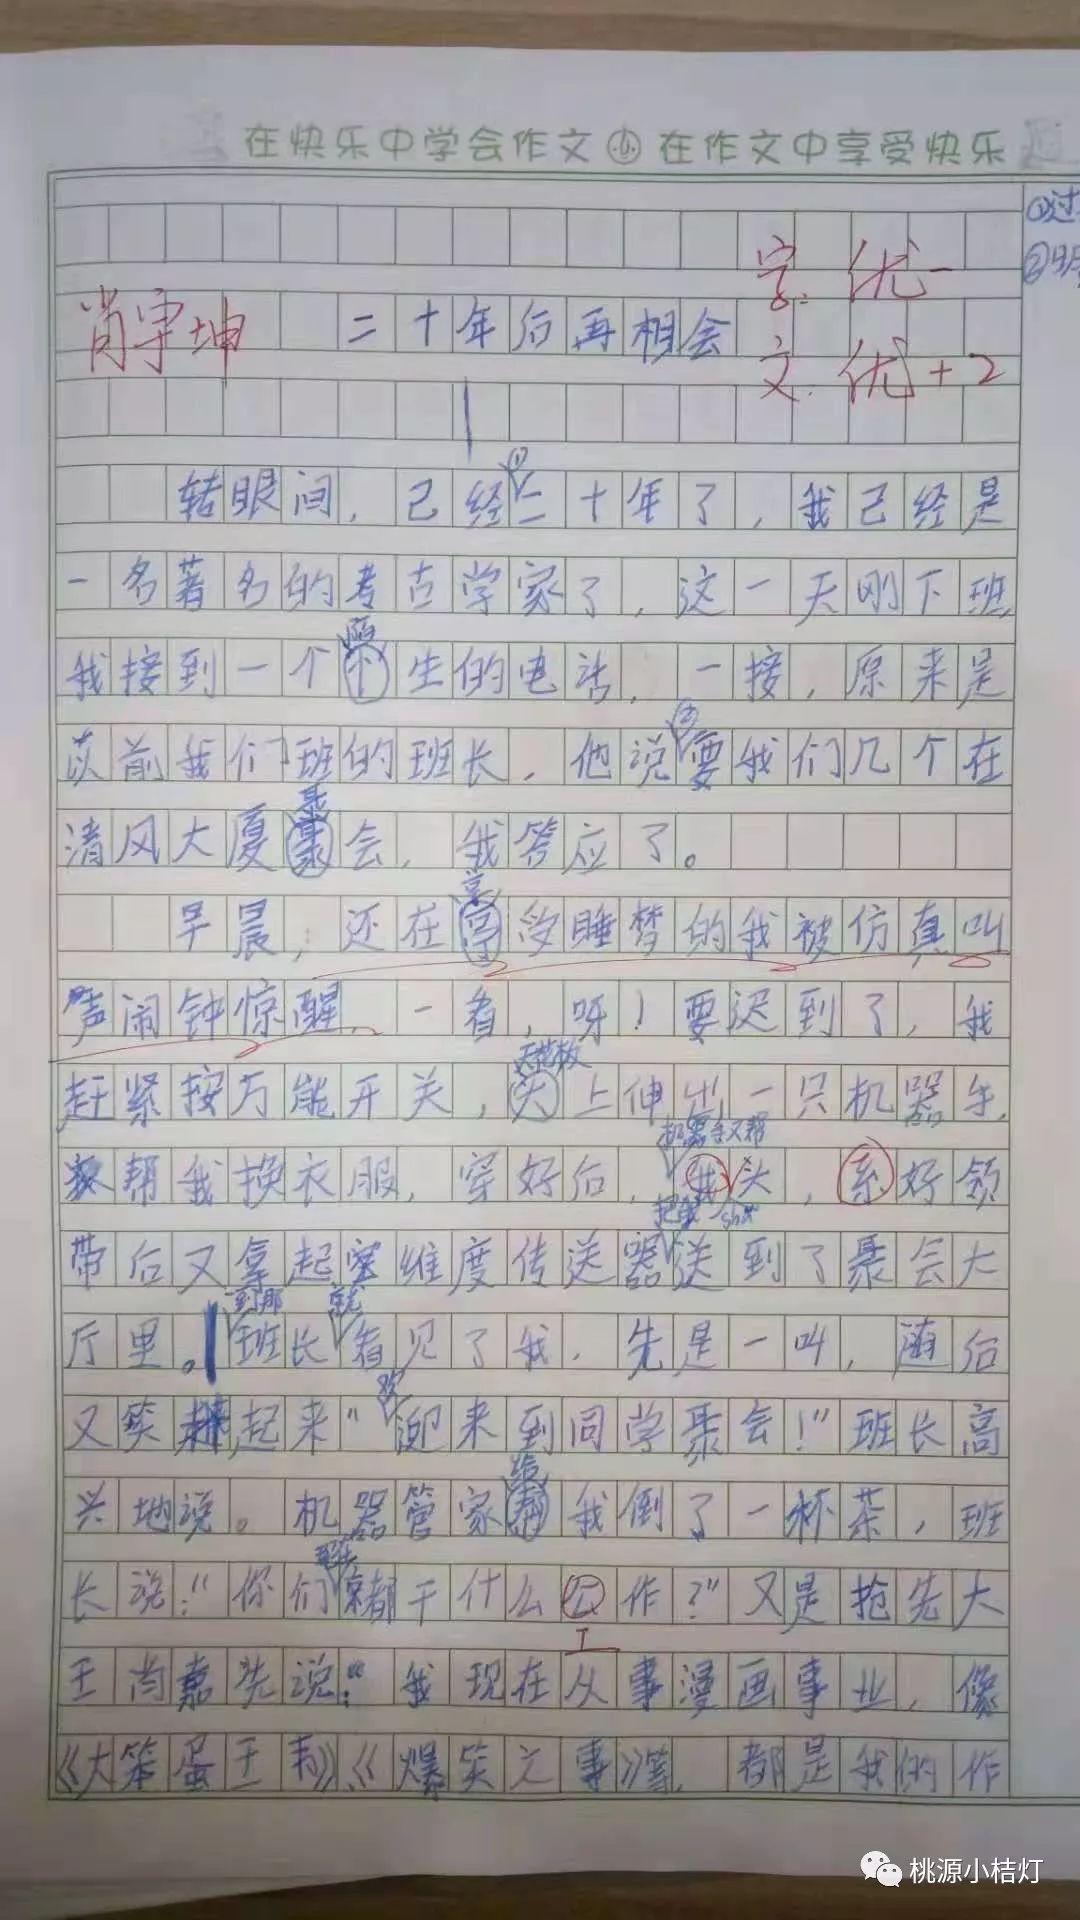 在快乐中学会作文 在作文中享受快乐
①过
②
字：优-
肖宇坤 二十年后再相会
文：优+2
①
转眼间，己经二十年了，我己经是
一名著名的考古学家了，这一天刚下班，
陌
我接到一个生的电话，一接，原来是
②
以前我们班的班长，他说要我们几个在
聚
清风大厦会，我答应了。
享
早晨，还在受睡梦的我被仿真叫
声闹钟惊醒，一看，呀！要迟到了，我
天花板
赶紧按万能开关，天上伸出一只机器手，
机器手又帮
帮我换衣服，穿好后，我头，系好领
把我
带后又拿起维度传送器送到了聚会大
到那 就
厅里。班长看见了我，先是一叫，随后
欢
又笑起来"迎来到同学聚会！"班长高
给
兴地说。机器管家帮我倒了一杯茶，班
现在
长说："你们都干什么公作？"又是抢先大
工
王肖嘉先说："我现在从事漫画事业，像
《大笨蛋王韦》《爆笑之事》等，都是我的作
桃源小桔灯